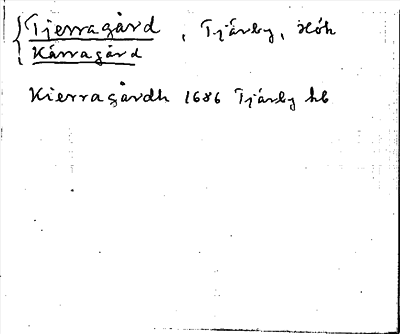 Tjerragård, Tjärby, Höh
Kärragård
Kierragårdh 1686 Tjärby hb